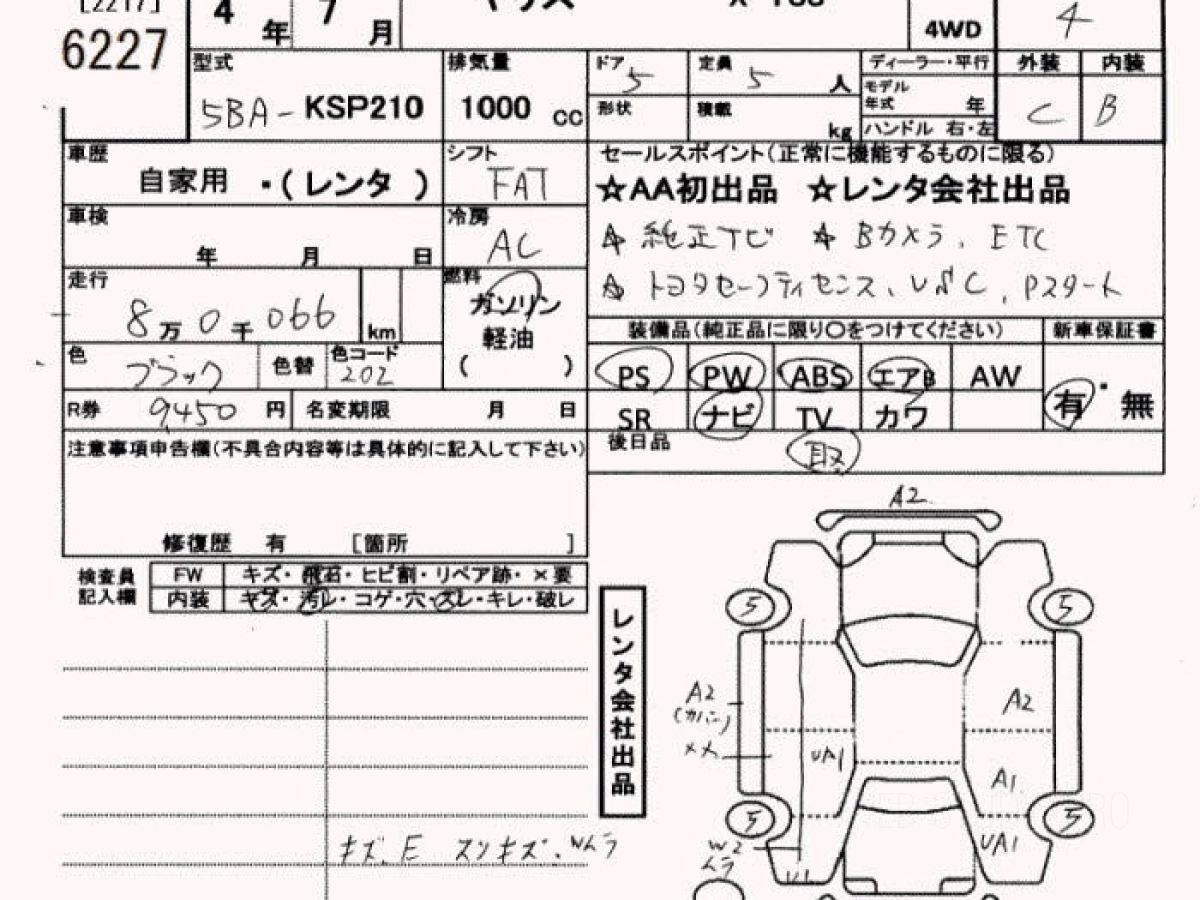 [2217]
6227
4 年 7 月
ヤリス
X
4WD
4
型式
5BA-KSP210
排気量
1000 cc
ドア 5
定員 5 人
形状
積載 kg
ディーラー・平行
モデル
年式 年
ハンドル 右・左
外装 内装
C B
車歴
自家用 ・(レンタ )
シフト
FAT
セールスポイント(正常に機能するものに限る)
☆AA初出品 ☆レンタ会社出品
☆ 純正ナビ ☆ Bカメラ、ETC
☆ トヨタセーフティセンス、VSC、Pスタート
車検
年 月 日
冷房
AC
走行
8万 0千 066 km
燃料
ガソリン
軽油
( )
色
ブラック
色替
色コード
202
装備品(純正品に限り○をつけてください)
新車保証書
PS PW ABS エアB AW
有・無
SR ナビ TV カワ
R券 9,450 円
名変期限 月 日
後日品
取
注意事項申告欄(不具合内容等は具体的に記入して下さい)
修復歴 有 [箇所 ]
検査員
記入欄
FW キズ・飛石・ヒビ割・リペア跡・×要
内装 キズ・汚レ・コゲ・穴・スレ・キレ・破レ
レンタ会社出品
A2
5 5
A2
(カバー)
A2
××
UA1
A1
5 5
UA1
W2
ムラ
U1
キズ.E スリキズ.Wムラ